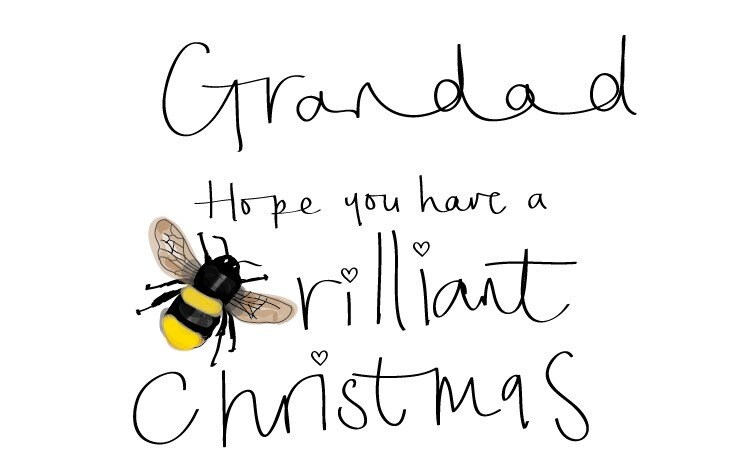 Grandad
Hope you have a
rilliant
Christmas